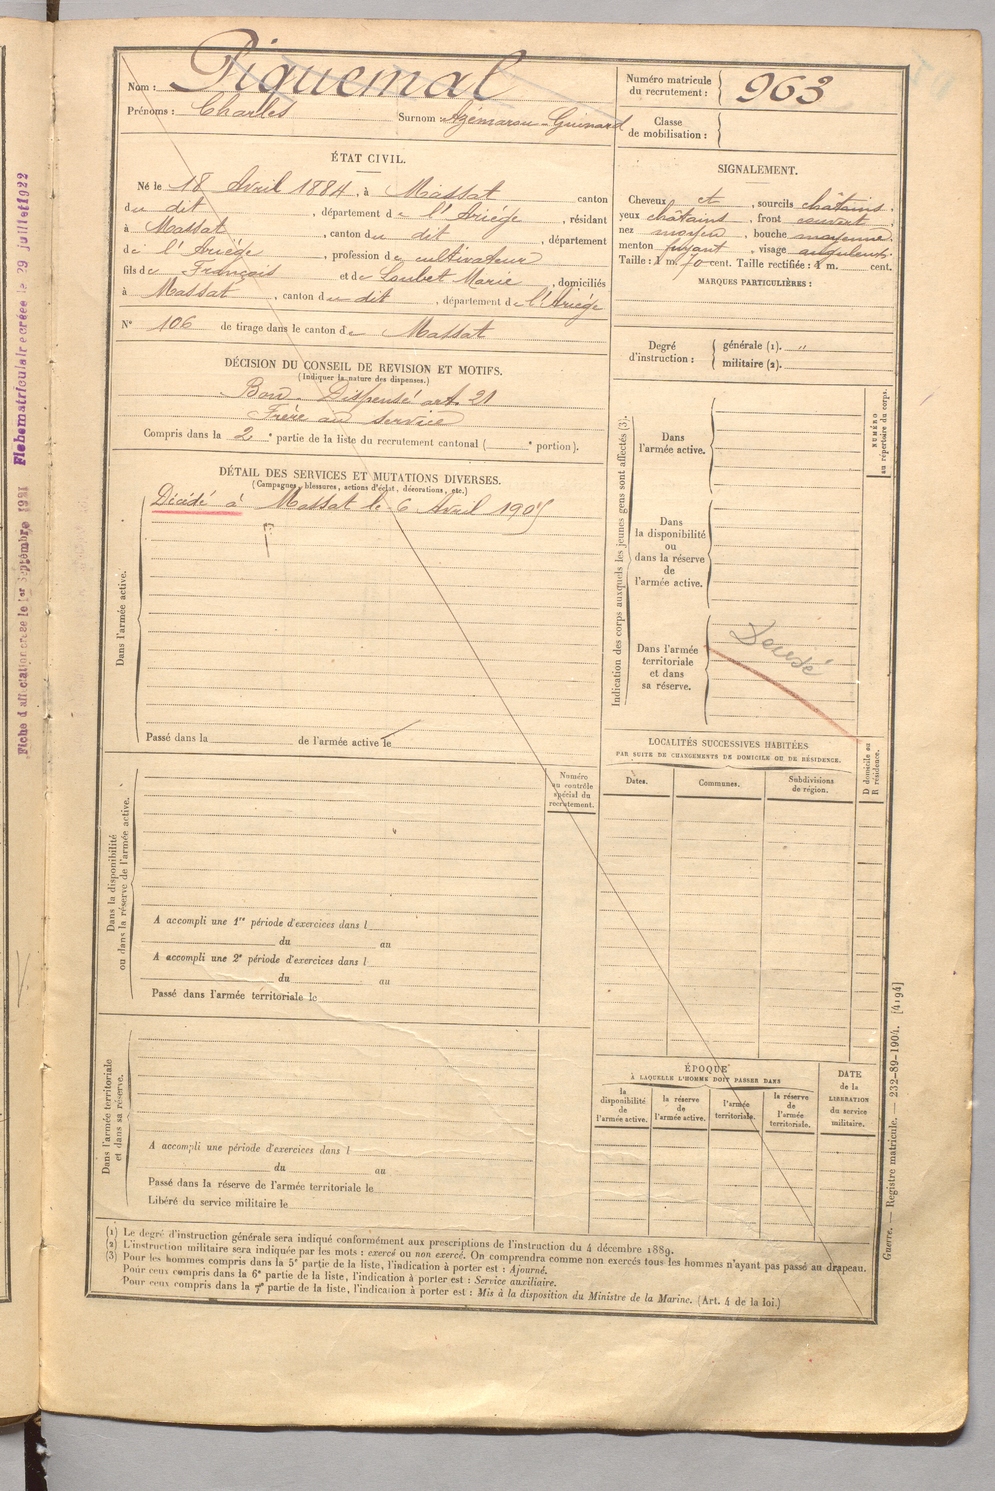 Nom : Piquemal
Prénoms : Charles Surnom : Agemarou-Guinard
Numéro matricule du recrutement : 963
Classe de mobilisation :
ÉTAT CIVIL.
Né le 18 Avril 1884, à Massat canton
du dit, département de l'Ariége, résidant
à Massat, canton du dit, département
de l'Ariége, profession de cultivateur
fils de François et de Loubet Marie, domiciliés
à Massat, canton du dit, département de l'Ariége
N° 106 de tirage dans le canton de Massat
SIGNALEMENT.
Cheveux et, sourcils châtains.
yeux châtains, front couvert,
nez moyen, bouche moyenne,
menton fuyant, visage anguleux.
Taille : 1 m. 70 cent. Taille rectifiée : 1 m. cent.
MARQUES PARTICULIÈRES :
Degré d'instruction : générale (1). "
militaire (2).
DÉCISION DU CONSEIL DE REVISION ET MOTIFS.
(Indiquer la nature des dispenses.)
Bon. Dispensé art. 21
Frère au service
Compris dans la 2e partie de la liste du recrutement cantonal ( e portion).
DÉTAIL DES SERVICES ET MUTATIONS DIVERSES.
(Campagnes, blessures, actions d'éclat, décorations, etc.)
Décédé à Massat le 6 Avril 1905
Dans l'armée active.
Passé dans la de l'armée active le
Indication des corps auxquels les jeunes gens sont affectés (3).
Dans l'armée active.
Dans la disponibilité ou dans la réserve de l'armée active.
Dans l'armée territoriale et dans sa réserve.
NUMÉRO au répertoire du corps.
LOCALITÉS SUCCESSIVES HABITÉES
PAR SUITE DE CHANGEMENTS DE DOMICILE OU DE RÉSIDENCE.
Dates. Communes. Subdivisions de région.
D domicile ou R résidence.
Dans la disponibilité ou dans la réserve de l'armée active.
Numéro au contrôle spécial du recrutement.
A accompli une 1re période d'exercices dans l
du au
A accompli une 2e période d'exercices dans l
du au
Passé dans l'armée territoriale le
Dans l'armée territoriale et dans sa réserve.
A accompli une période d'exercices dans l
du au
Passé dans la réserve de l'armée territoriale le
Libéré du service militaire le
ÉPOQUE
À LAQUELLE L'HOMME DOIT PASSER DANS
la disponibilité de l'armée active.
la réserve de l'armée active.
l'armée territoriale.
la réserve de l'armée territoriale.
DATE de la LIBÉRATION du service militaire.
(1) Le degré d'instruction générale sera indiqué conformément aux prescriptions de l'instruction du 4 décembre 1889.
(2) L'instruction militaire sera indiquée par les mots : exercé ou non exercé. On comprendra comme non exercés tous les hommes n'ayant pas passé au drapeau.
(3) Pour les hommes compris dans la 5e partie de la liste, l'indication à porter est : Ajourné.
Pour ceux compris dans la 6e partie de la liste, l'indication à porter est : Service auxiliaire.
Pour ceux compris dans la 7e partie de la liste, l'indication à porter est : Mis à la disposition du Ministre de la Marine. (Art. 4 de la loi.)
Guerre. — Registre matricule. — 232-89-1904. [4194]
Fiche d'affectation créée le 1er Septembre 1921
Fiche matriculaire créée le 29 juillet 1922